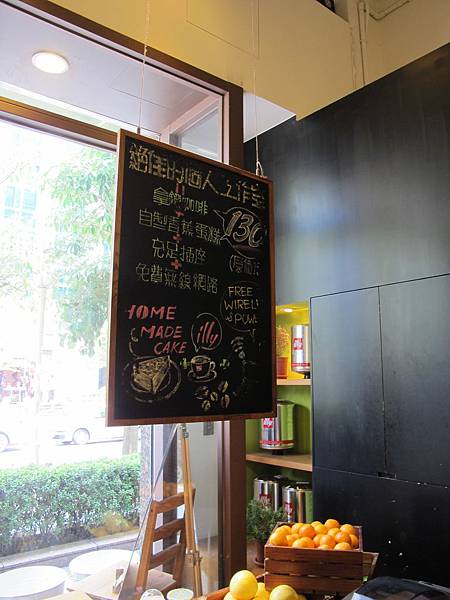 絕佳的個人工作室
拿鐵咖啡
+
自製香蕉蛋糕
130
+
充足插座
+
免費無線網路
FREE
WIREL
& POW
HOME
MADE
CAKE
illy